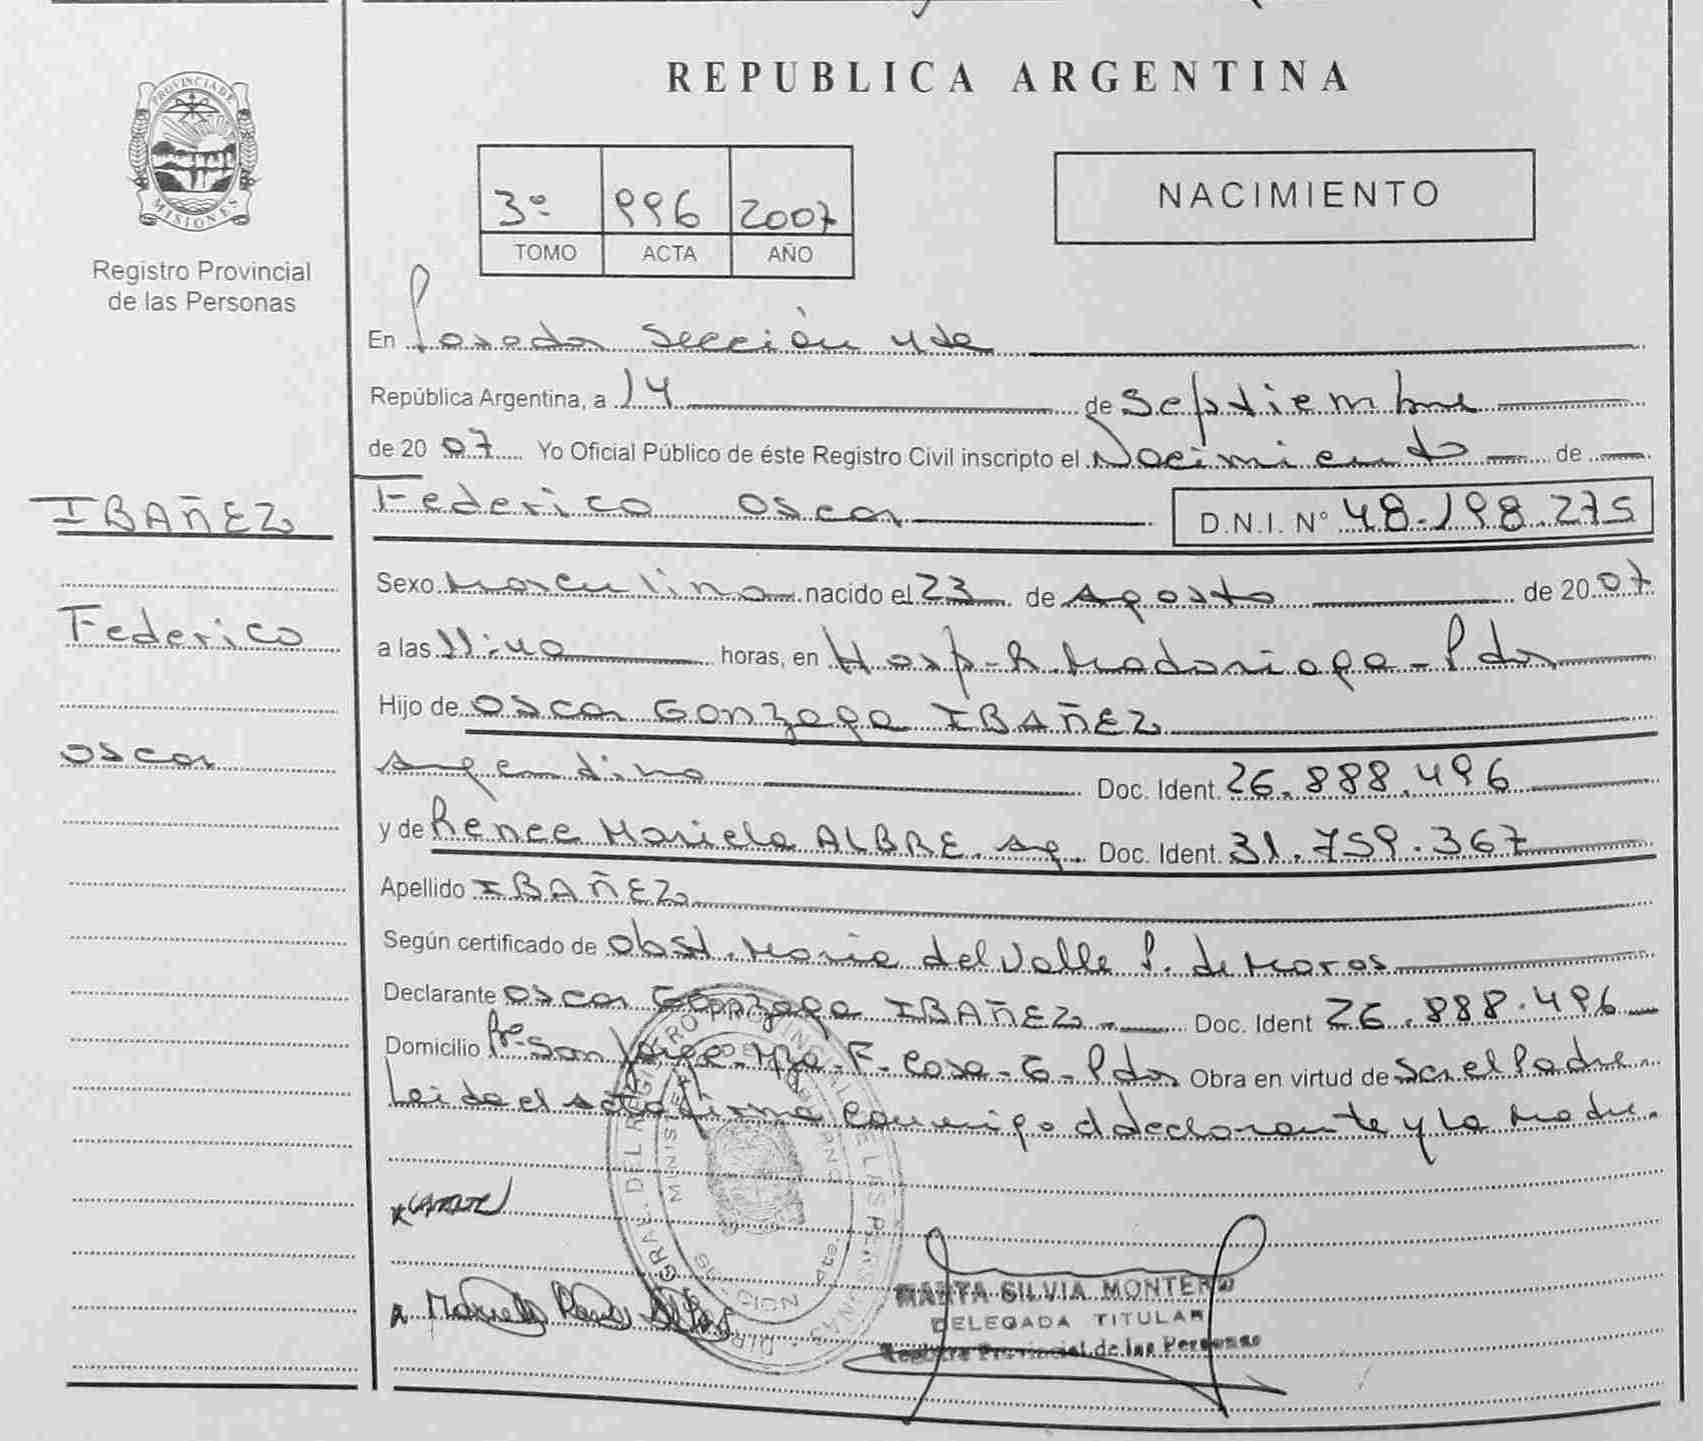 PROVINCIA DE
MISIONES
Registro Provincial
de las Personas
IBAÑEZ
Federico
Oscar
REPUBLICA ARGENTINA
3º 996 2007
TOMO ACTA AÑO
NACIMIENTO
En Posadas Sección 4ta
República Argentina, a 14 de Septiembre
de 2007 Yo Oficial Público de éste Registro Civil inscripto el Nacimiento de
Federico Oscar D.N.I. Nº 48.198.275
Sexo Masculino nacido el 23 de Agosto de 2007
a las 11:40 horas, en Hosp-R. Madariaga-Pdas
Hijo de Oscar Gonzaga IBAÑEZ
Argentino Doc. Ident. 26.888.496
y de Renee Mariela ALBRE. Arg. Doc. Ident. 31.759.367
Apellido IBAÑEZ
Según certificado de Obst. Maria del Valle P. de Maras
Declarante Oscar Gonzaga IBAÑEZ. Doc. Ident 26.888.496
Domicilio Bº San Jorge-Mza-F-Casa-6-Pdas Obra en virtud de Ser el Padre.
Leida el acta firma conmigo el declarante y la Madre.
MARTA SILVIA MONTERO
DELEGADA TITULAR
Registro Provincial de las Personas